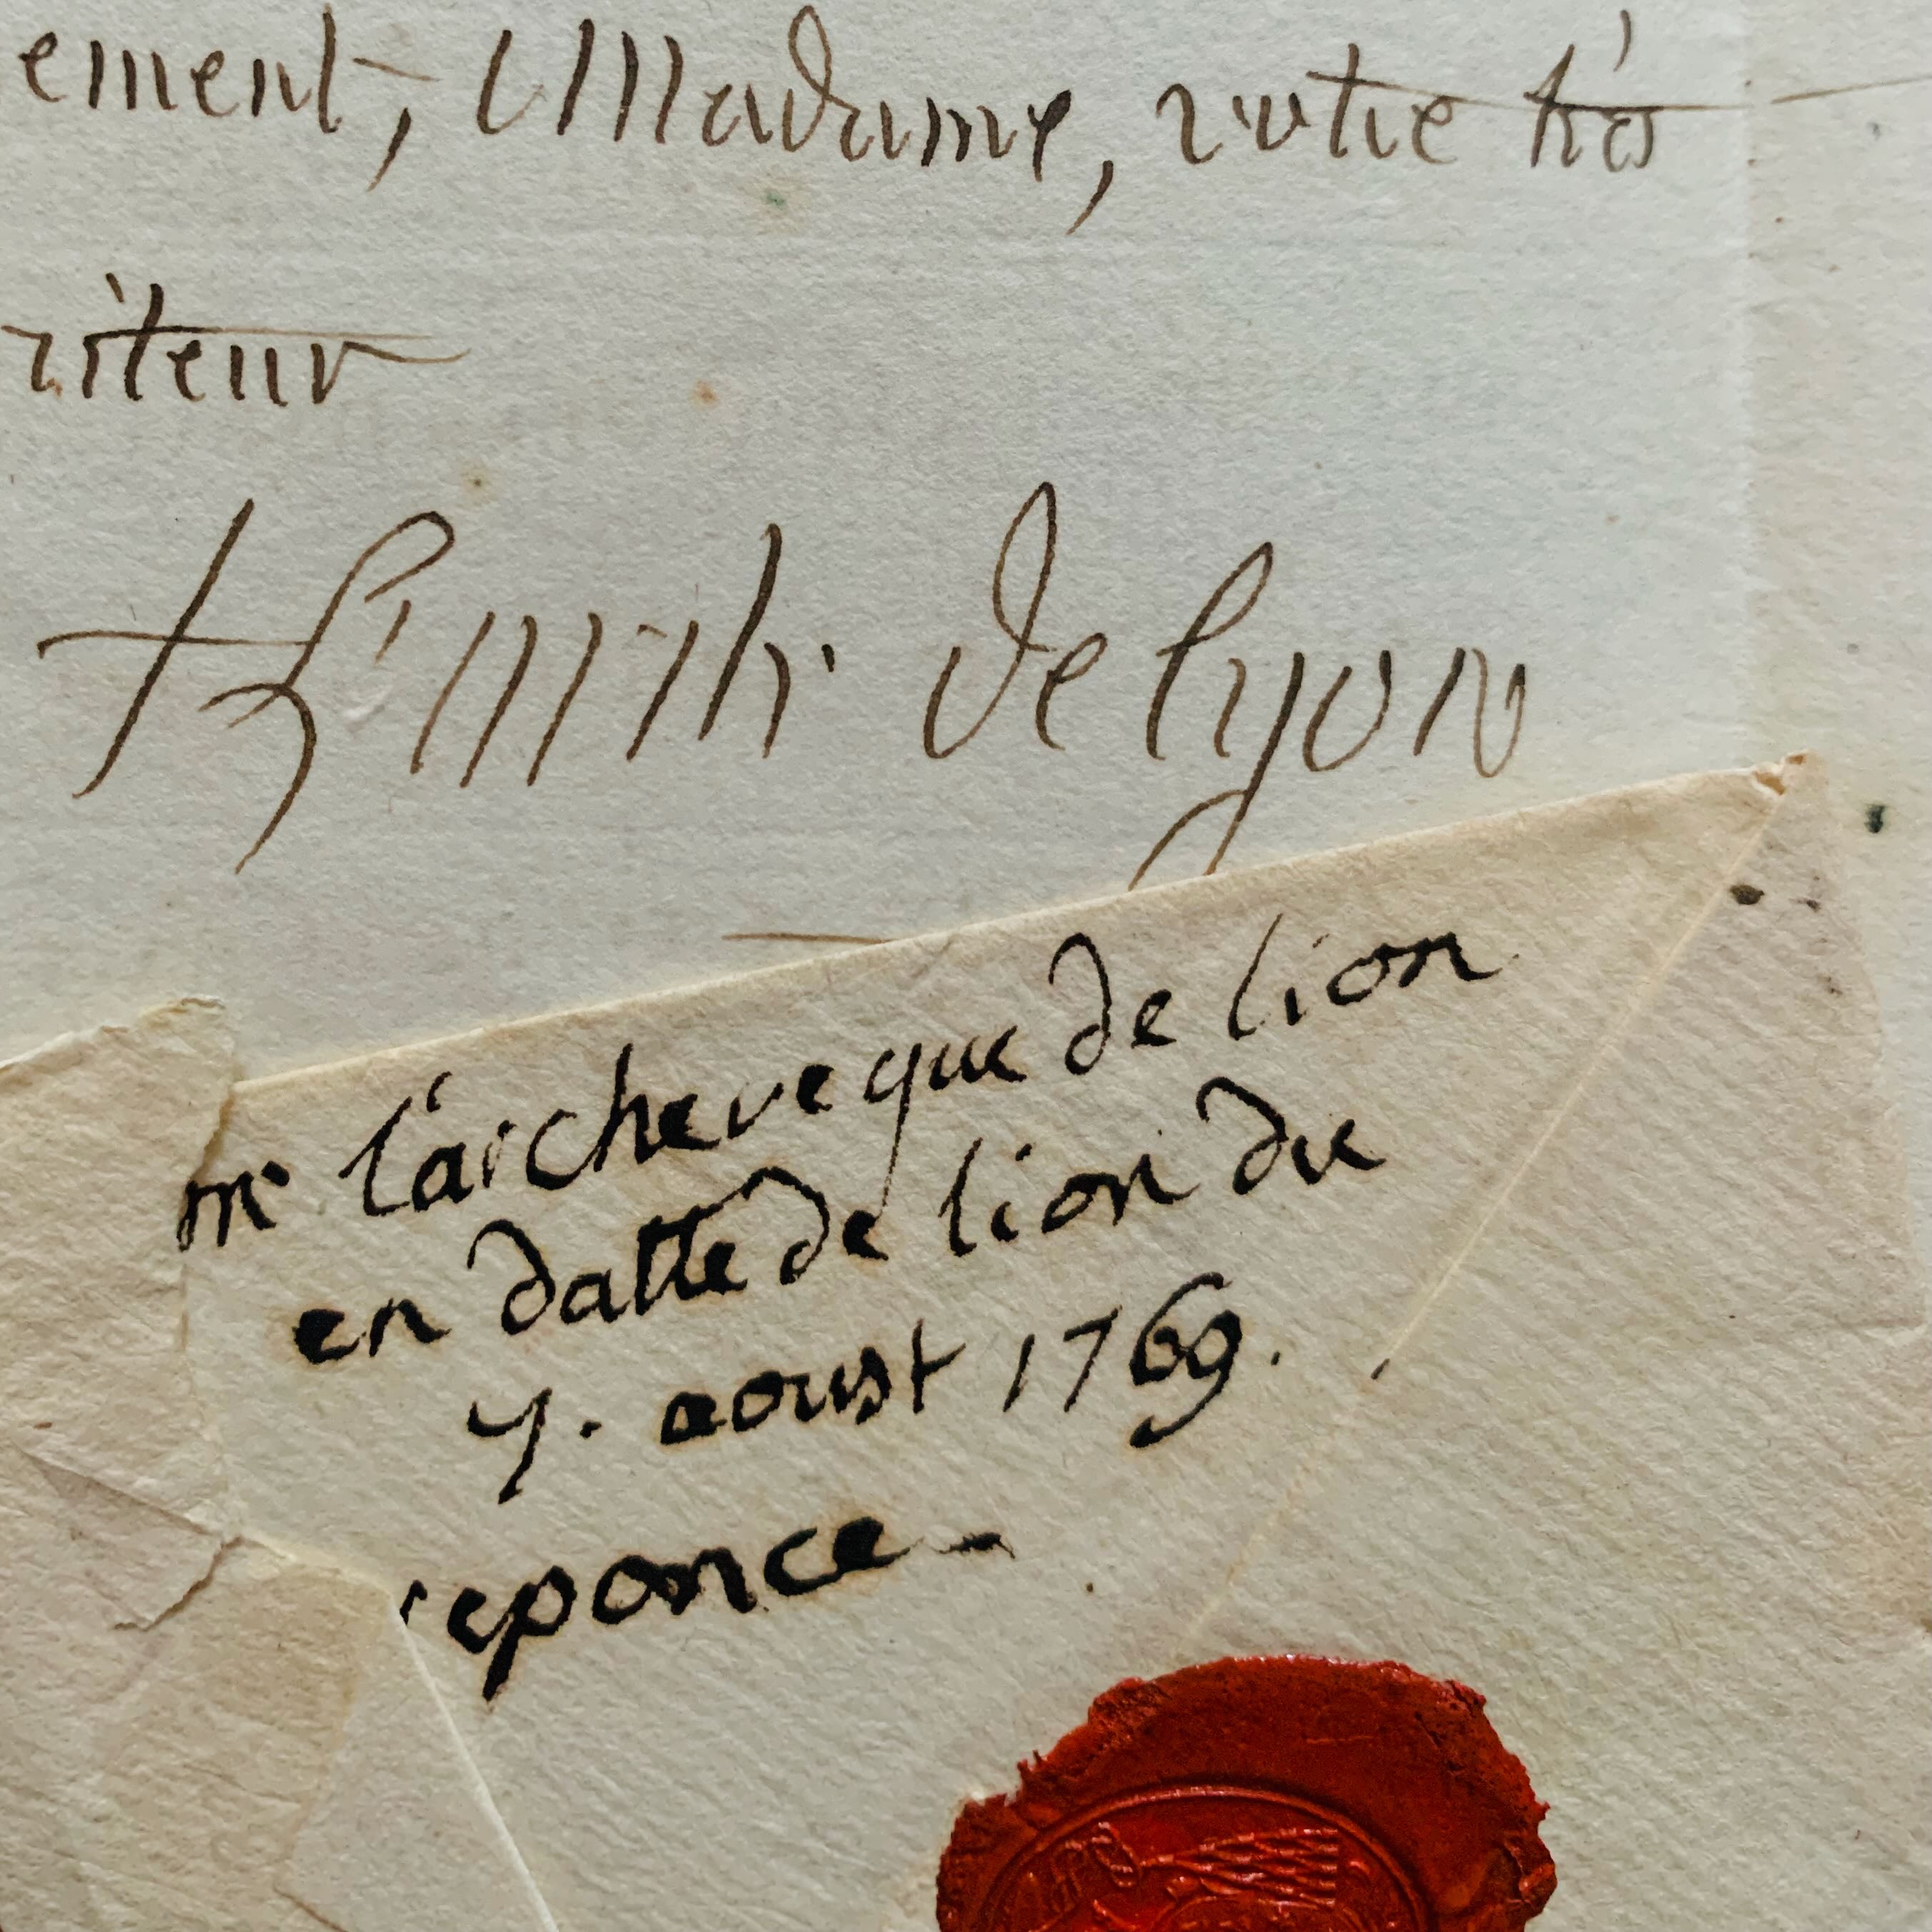 ement, Madame, votre très
viteur
de lyon
mr l'archeveque de lion
en datte de lion du
7. aoust 1769.
reponce –